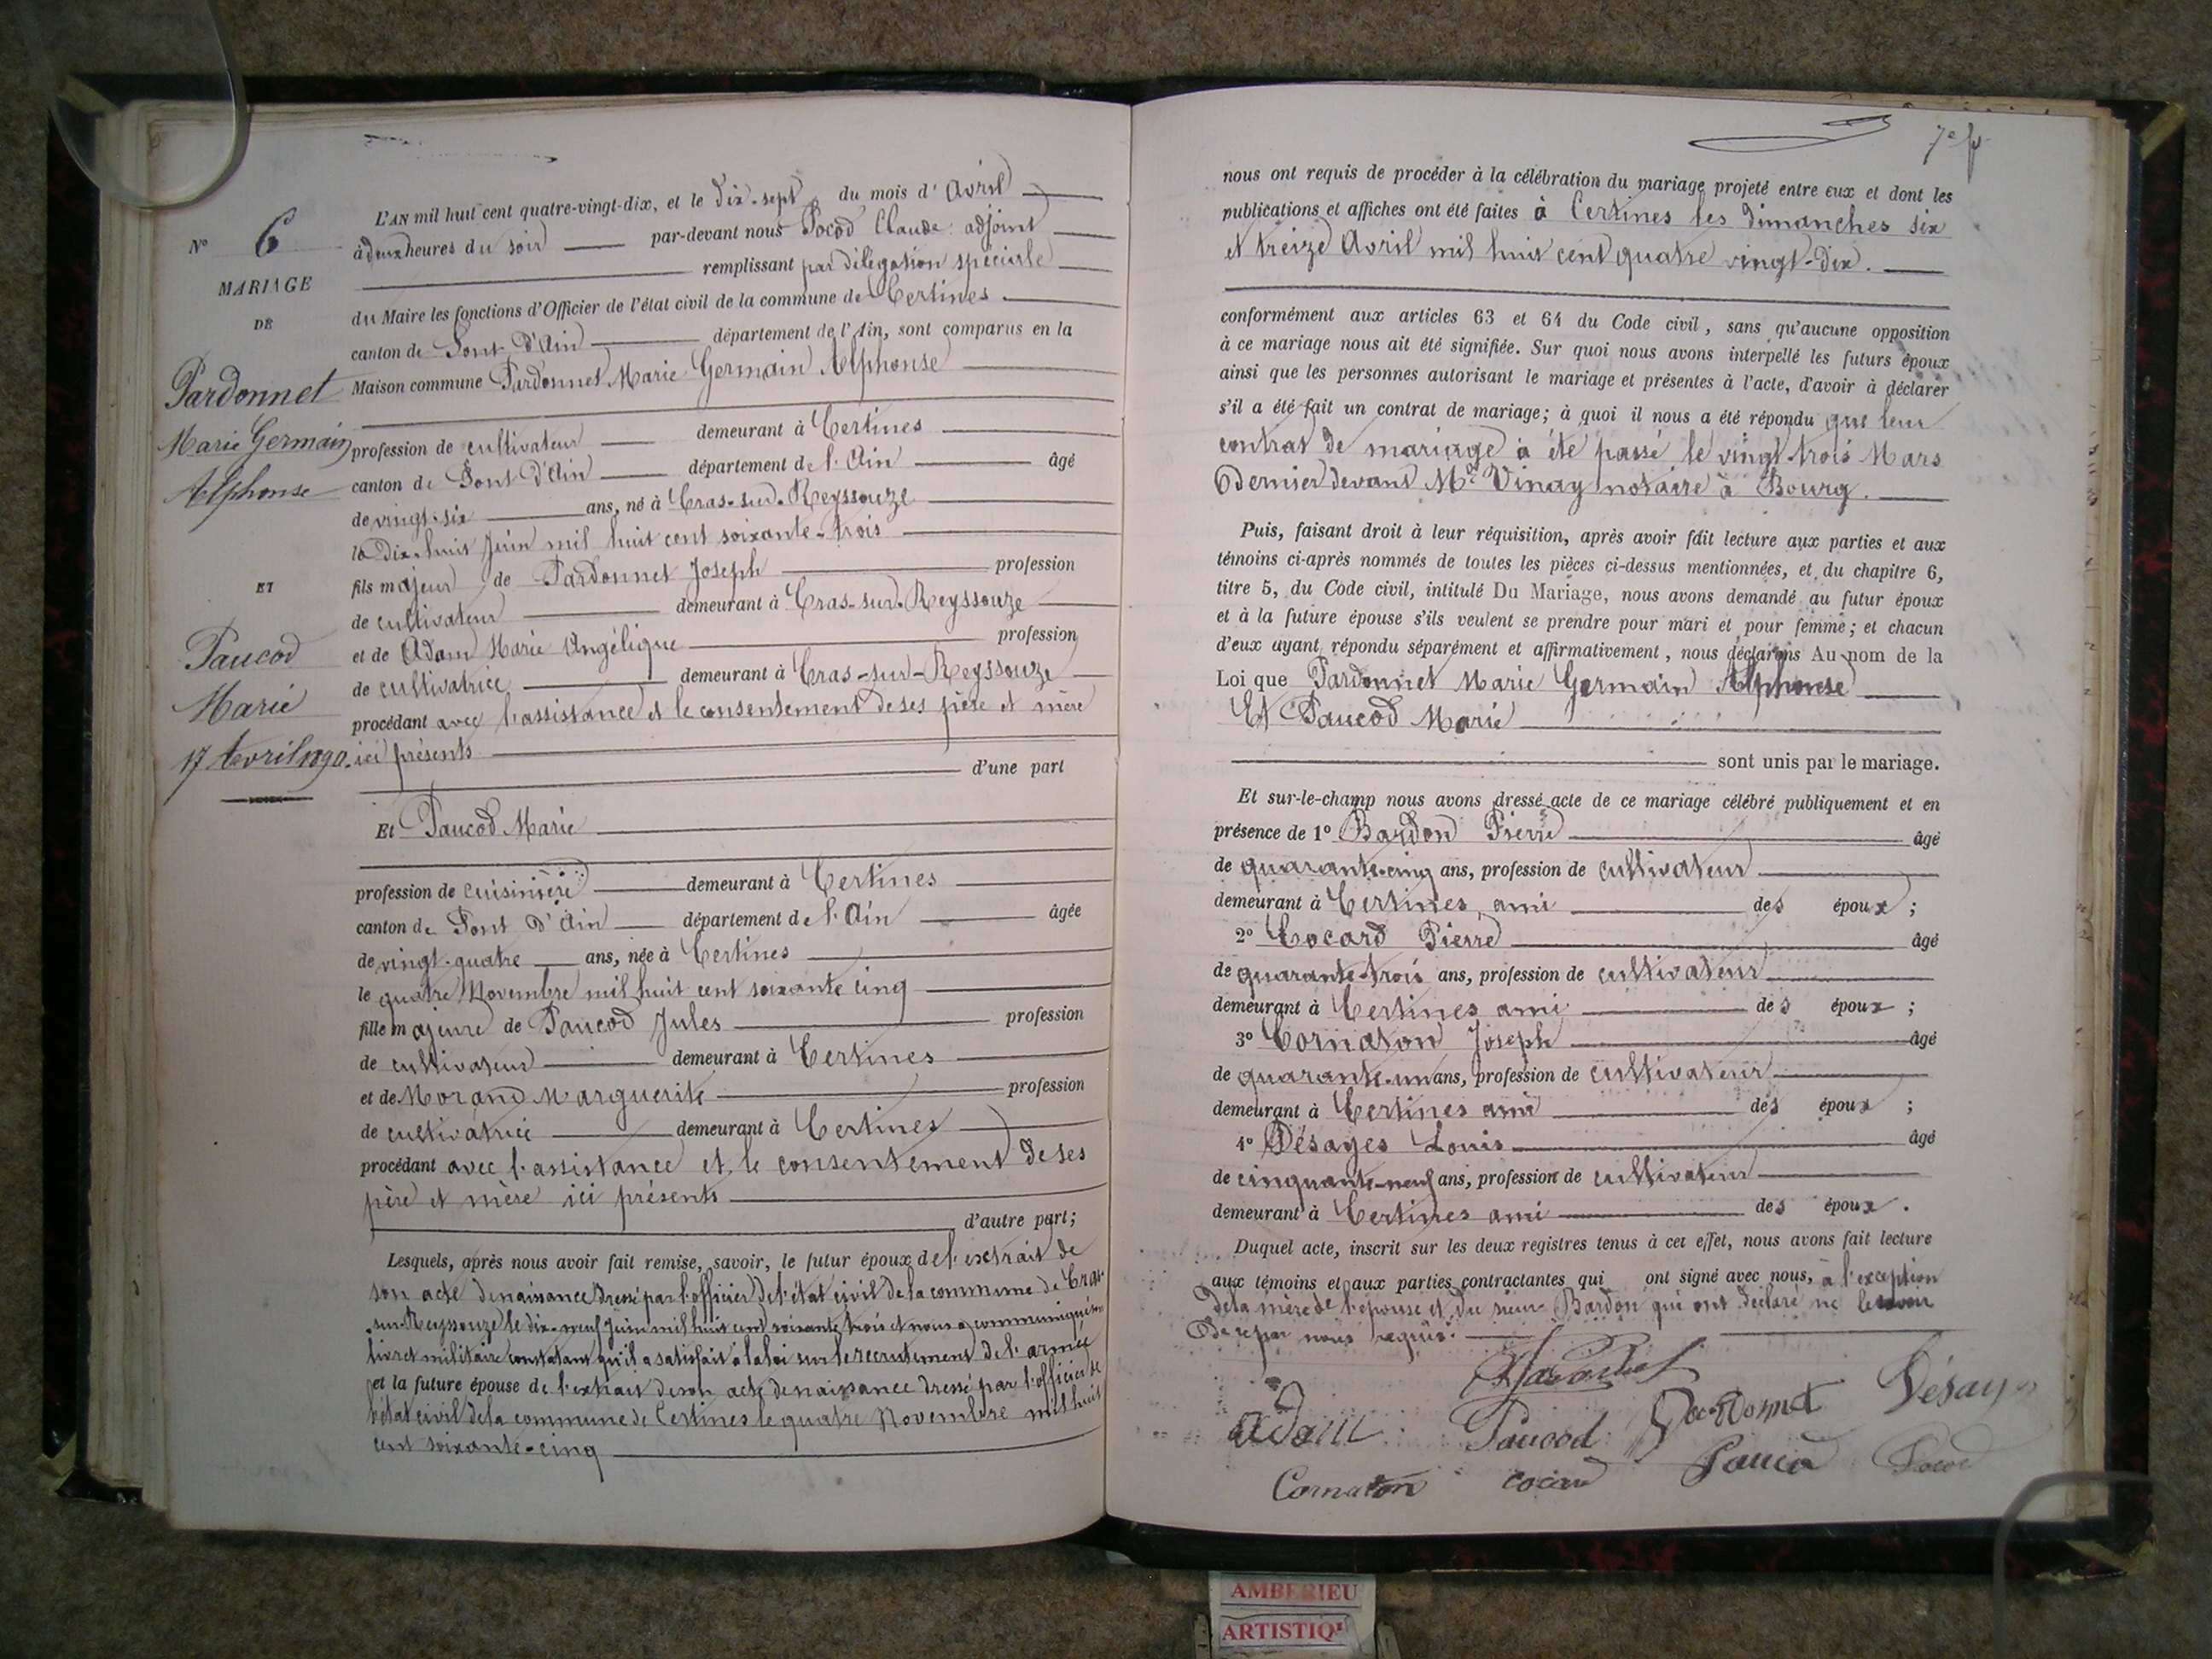 N° 6
MARIAGE
DE
Pardonnet
Marie Germain
Alphonse
ET
Paucod
Marie
17 Avril 1890.
L'AN mil huit cent quatre-vingt-dix, et le dix-sept du mois d'Avril
à deux heures du soir par-devant nous Pocod Claude adjoint
remplissant par délégation spéciale
du Maire les fonctions d'Officier de l'état civil de la commune de Certines
canton de Pont d'Ain département de l'Ain, sont comparus en la
Maison commune Pardonnet Marie Germain Alphonse
profession de cultivateur demeurant à Certines
canton de Pont d'Ain département de l'Ain âgé
de vingt-six ans, né à Cras-sur-Reyssouze
le dix-huit Juin mil huit cent soixante-trois
fils majeur de Pardonnet Joseph profession
de cultivateur demeurant à Cras-sur-Reyssouze
et de Adam Marie Angélique profession
de cultivatrice demeurant à Cras-sur-Reyssouze
procédant avec l'assistance et le consentement de ses père et mère
ici présents
d'une part
Et Paucod Marie
profession de cuisinière demeurant à Certines
canton de Pont d'Ain département de l'Ain âgée
de vingt-quatre ans, née à Certines
le quatre Novembre mil huit cent soixante cinq
fille majeure de Paucod Jules profession
de cultivateur demeurant à Certines
et de Morand Marguerite profession
de cultivatrice demeurant à Certines
procédant avec l'assistance et le consentement de ses
père et mère ici présents
d'autre part;
Lesquels, après nous avoir fait remise, savoir, le futur époux de l'extrait de
son acte de naissance dressé par l'officier de l'état civil de la commune de Cras-
sur-Reyssouze le dix-neuf Juin mil huit cent soixante trois et nous a communiqué son
livret militaire constatant qu'il a satisfait à la loi sur le recrutement de l'armée
et la future épouse de l'extrait de son acte de naissance dressé par l'officier de
l'état civil de la commune de Certines le quatre Novembre mil huit
cent soixante-cinq
7e f
nous ont requis de procéder à la célébration du mariage projeté entre eux et dont les
publications et affiches ont été faites à Certines les dimanches six
et treize Avril mil huit cent quatre vingt-dix.
conformément aux articles 63 et 64 du Code civil, sans qu'aucune opposition
à ce mariage nous ait été signifiée. Sur quoi nous avons interpellé les futurs époux
ainsi que les personnes autorisant le mariage et présentes à l'acte, d'avoir à déclarer
s'il a été fait un contrat de mariage; à quoi il nous a été répondu que leur
contrat de mariage a été passé le vingt-trois Mars
dernier devant Me Vinay notaire à Bourg.
Puis, faisant droit à leur réquisition, après avoir fait lecture aux parties et aux
témoins ci-après nommés de toutes les pièces ci-dessus mentionnées, et du chapitre 6,
titre 5, du Code civil, intitulé Du Mariage, nous avons demandé au futur époux
et à la future épouse s'ils veulent se prendre pour mari et pour femme; et chacun
d'eux ayant répondu séparément et affirmativement, nous déclarons Au nom de la
Loi que Pardonnet Marie Germain Alphonse
Et Paucod Marie
sont unis par le mariage.
Et sur-le-champ nous avons dressé acte de ce mariage célébré publiquement et en
présence de 1° Bardon Pierre âgé
de quarante-cinq ans, profession de cultivateur
demeurant à Certines ami des époux;
2° Cocard Pierre âgé
de quarante-trois ans, profession de cultivateur
demeurant à Certines ami des époux;
3° Cornaton Joseph âgé
de quarante-un ans, profession de cultivateur
demeurant à Certines ami des époux;
4° Désayes Louis âgé
de cinquante-neuf ans, profession de cultivateur
demeurant à Certines ami des époux.
Duquel acte, inscrit sur les deux registres tenus à cet effet, nous avons fait lecture
aux témoins et aux parties contractantes qui ont signé avec nous, à l'exception
de la mère de l'épouse et du sieur Bardon qui ont déclaré ne le savoir
de ce par nous requis.
Adam Paucod Pardonnet Désayes
Cornaton Cocard Paucod Pocod
AMBERIEU
ARTISTIQ